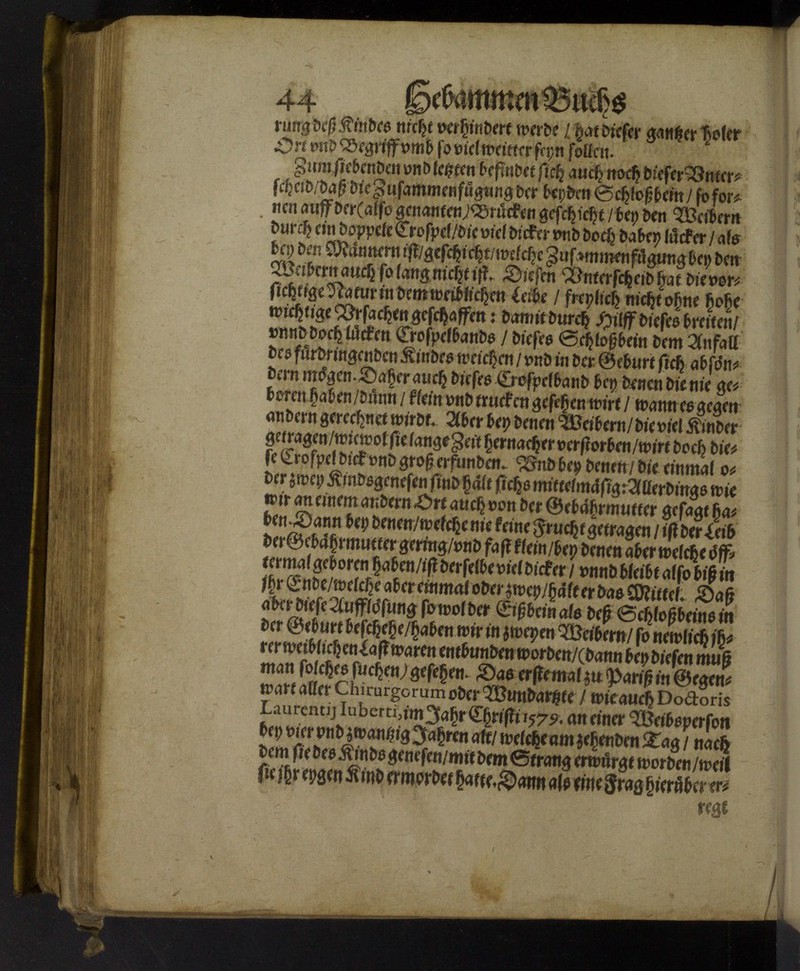 44 Hebammen Buchs
rung deß Kindes nicht verhindert werde / hat dieser gantzer holer
Ort vnd Begriff vmb so viel weitter seyn sollen.
Zum siebenden vnd letzten befindet sich auch noch dieser Vnter⸗
scheid / daß die Zusammenfügung der beyden Schloßbein / so for⸗
nen auff der (also genanten) Brücken geschicht / bey den Weibern
durch ein doppele Crospel / die viel dicker vnd doch dabey lücker / als
bey den Männern ist / geschicht / welche Zusammenfügung bey den
Weibern auch so lang nicht ist. Diesen Vnterscheid hat die vor⸗
sichtige Natur in dem weiblichen Leibe / freylich nicht ohne hohe
wichtige Vrsachen geschaffen: damit durch Hilff dieses breiten /
vnnd doch lücken Crospelbands / dieses Schloßbein dem Anfall
des fürdringenden Kindes weichen / vnd in der Geburt sich absön⸗
dern mögen. Daher auch dieses Crospelband bey denen die nie ge⸗
boren haben / dünn / klein vnd trucken gesehen wirt / wann es gegen
andern gerechnet wirdt. Aber bey denen Weibern / die viel Kinder
getragen / wiewol sie lange Zeit hernacher verstorben / wirt doch die⸗
se Crospel dick vnd groß erfunden. Vnd bey denen / die einmal o⸗
der zwey Kindsgenesen sind hält sichs mittelmäsig: Allerdings wie
wir an einem andern Ort auch von der Gebährmutter gesagt ha⸗
ben. Dann bey denen / welche nie keine Frucht getragen / ist der Leib
der Gebährmutter gering / vnd fast klein / bey denen aber welche öff⸗
termal geboren haben / ist derselbe viel dicker / vnnd bleibt also biß in
jhr Ende / welche aber einmal oder zwey / hält er das Mittel. Daß
aber diese Aufflösung so wol der Eißbein als deß Schloßbeins in
der Geburt beschehe / haben wir in zweyen Weibern / so newlich jh⸗
rer weiblichen Last waren entbunden worden / (dann bey diesen muß
man solches suchen) gesehen. Das erstemal zu Pariß in Gegen⸗
wart aller Chirurgorum oder Wundartzte / wie auch Doctoris
Laurentij Iuberti, im Jahr Christi 1579. an einer Weibsperson
bey vier vnd zwanzig Jahren alt / welche am zehenden Tag / nach
dem sie des Kinds genesen / mit dem Strang erwürgt worden / weil
sie jhr eygen Kind ermordet hatte. Dann als eine Frag hierüber er⸗
regt